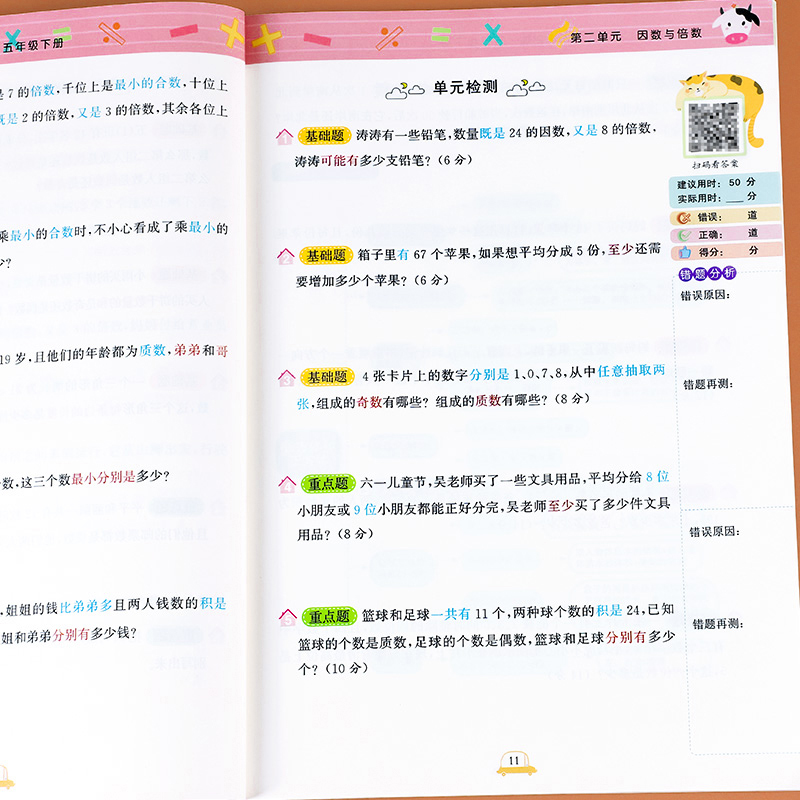 五年级下册
是7的倍数,千位上是最小的合数,十位上
既是2的倍数,又是3的倍数,其余各位上
乘最小的合数时,不小心看成了乘最小的
少?
19岁,且他们的年龄都为质数,弟弟和哥
数,这三个数最小分别是多少?
,姐姐的钱比弟弟多且两人钱数的积是
姐和弟弟分别有多少钱?
第二单元 因数与倍数
单元检测
1 基础题 涛涛有一些铅笔,数量既是24的因数,又是8的倍数,
涛涛可能有多少支铅笔?(6分)
2 基础题 箱子里有67个苹果,如果想平均分成5份,至少还需
要增加多少个苹果?(6分)
3 基础题 4张卡片上的数字分别是1、0、7、8,从中任意抽取两
张,组成的奇数有哪些?组成的质数有哪些?(8分)
4 重点题 六一儿童节,吴老师买了一些文具用品,平均分给8位
小朋友或9位小朋友都能正好分完,吴老师至少买了多少件文具
用品?(8分)
5 重点题 篮球和足球一共有11个,两种球个数的积是24,已知
篮球的个数是质数,足球的个数是偶数,篮球和足球分别有多少
个?(10分)
扫码看答案
建议用时:50分
实际用时:___分
错误: 道
正确: 道
得分: 分
错题分析
错误原因:
错题再测:
错误原因:
错题再测:
11